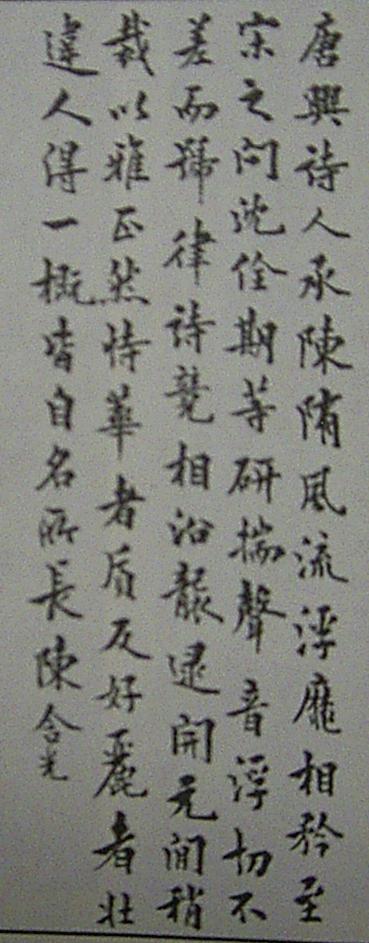 唐興詩人承陳隋風流浮靡相矜至
宋之問沈佺期等研揣聲音浮切不
差而號律詩競相沿襲逮開元間稍
裁以雅正然恃華者质反好麗者壯
違人得一概皆自名所長陳含光